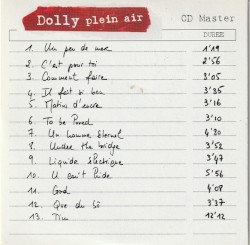 Dolly plein air CD Master
DURÉE
1. Un peu de mer 1'19
2. C'est pour toi 2'56
3. Comment faire 3'05
4. Il fait si bon 3'35
5. Matins d'encre 3'16
6. To be Pared 3'10
7. Un homme éternel 4'30
8. Under the bridge 3'52
9. Liquide Electrique 3'47
10. U can't hide 5'56
11. Good 4'08
12. Que du bô 3'37
13. 12'12